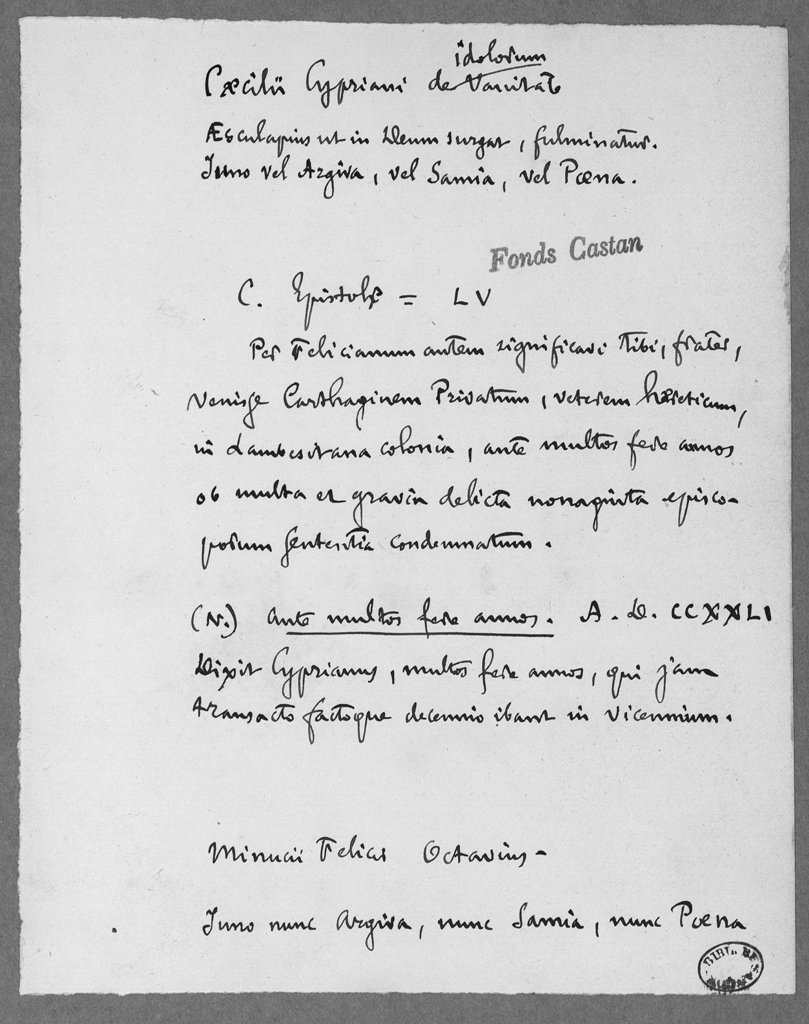 idolorum
Cæcilii Cypriani de Vanitate
Æsculapius ut in Deum surgat, fulminatur.
Juno vel Argiva, vel Samia, vel Pœna.
Fonds Castan
C. Epistolæ = LV
Per Felicianum autem significavi tibi, frater,
venisse Carthaginem Privatum, veterem hæreticum,
in Lambesitana colonia, ante multos fere annos
ob multa et gravia delicta nonaginta episco-
porum sententia condemnatum.
(N.) ante multos fere annos. A. D. CCXXLI
Dixit Cyprianus, multos fere annos, qui jam
transacto factoque decennio ibant in vicennium.
Minucii Felicis Octavius -
Juno nunc Argiva, nunc Samia, nunc Pœna
BIBL. BESANÇON